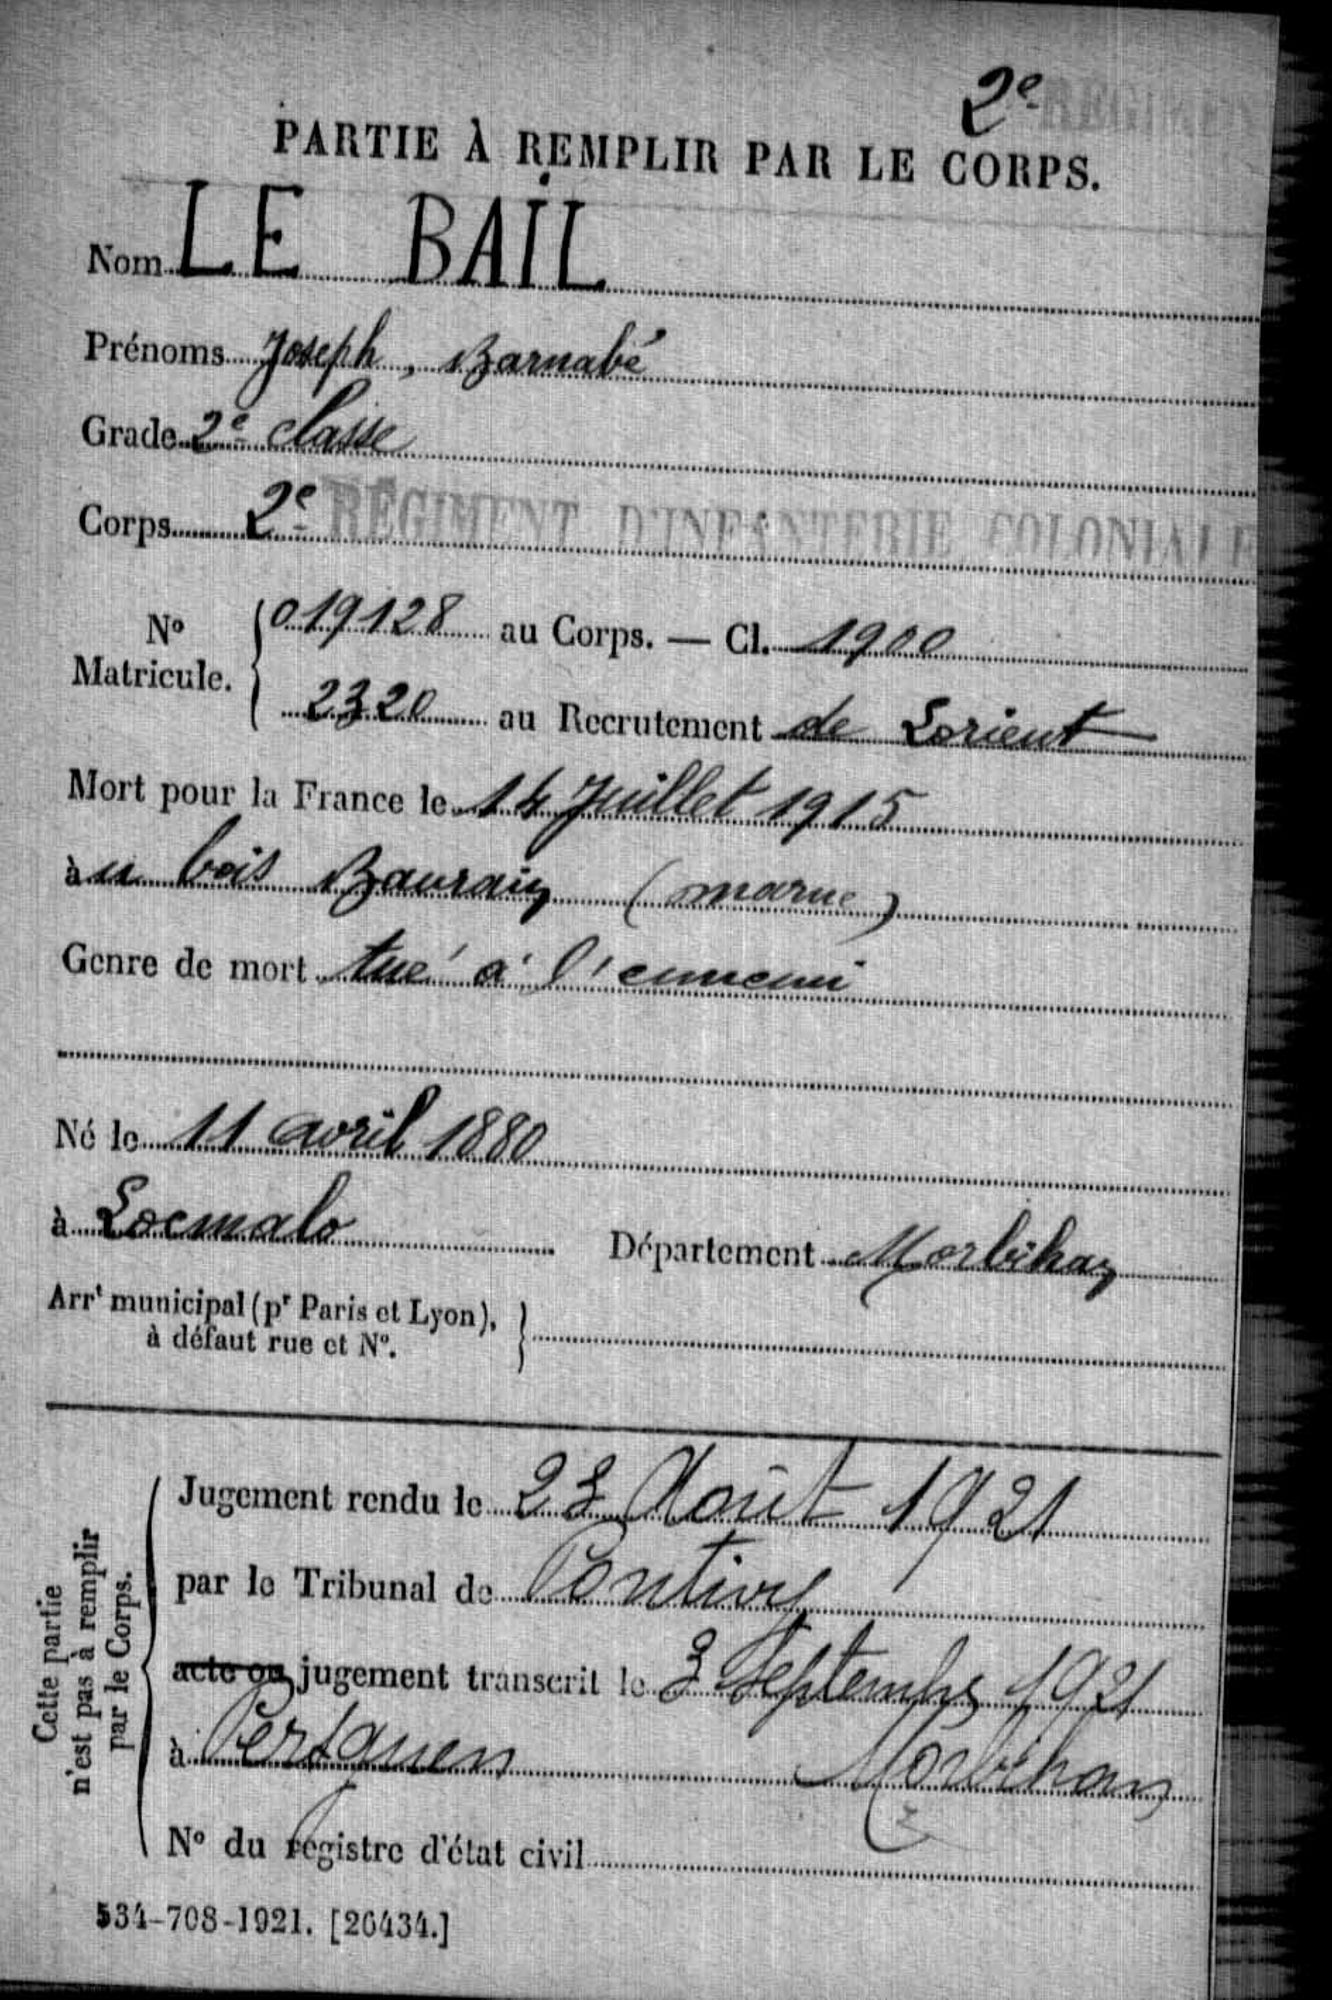 2e REGIMENT
PARTIE À REMPLIR PAR LE CORPS.
Nom LE BAIL
Prénoms Joseph, Barnabé
Grade 2e classe
Corps 2e RÉGIMENT D'INFANTERIE COLONIALE
No Matricule. { 019128 au Corps. — Cl. 1900
2320 au Recrutement de Lorient
Mort pour la France le 14 Juillet 1915
au bois Baurain (marne)
Genre de mort tué à l'ennemi
Né le 11 avril 1880
à Locmalo Département Morbihan
Arrt municipal (pr Paris et Lyon), à défaut rue et No. }
Cette partie n'est pas à remplir par le Corps.
Jugement rendu le 23 Août 1921
par le Tribunal de Pontivy
acte ou jugement transcrit le 3 Septembre 1921
à Persquen Morbihan
No du registre d'état civil
534-708-1921. [26434.]